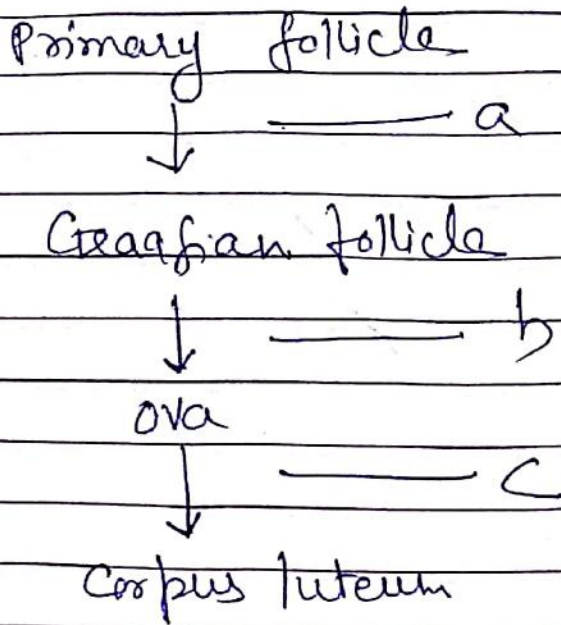 Primary follicle
a
Graafian follicle
b
ova
c
Corpus luteum